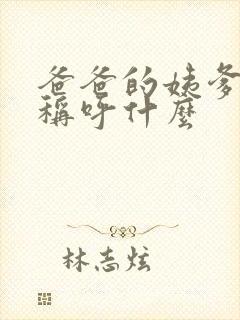 爸爸的姨爹
稱呼什麼
林志炫